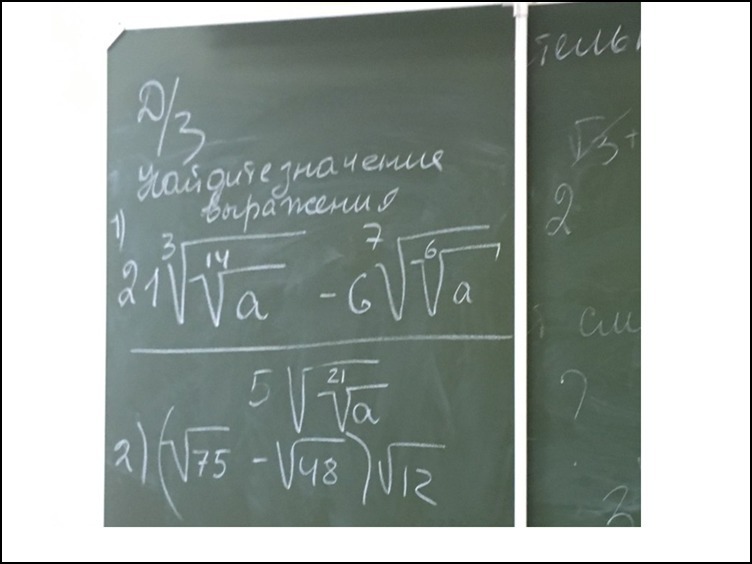 Д/З
Найдите значение
выражения
1) 21∛(¹⁴√a) - 6⁷√(⁶√a)
5√(²¹√a)
2) (√75 - √48)√12
тель
√3+
2
см
?
3